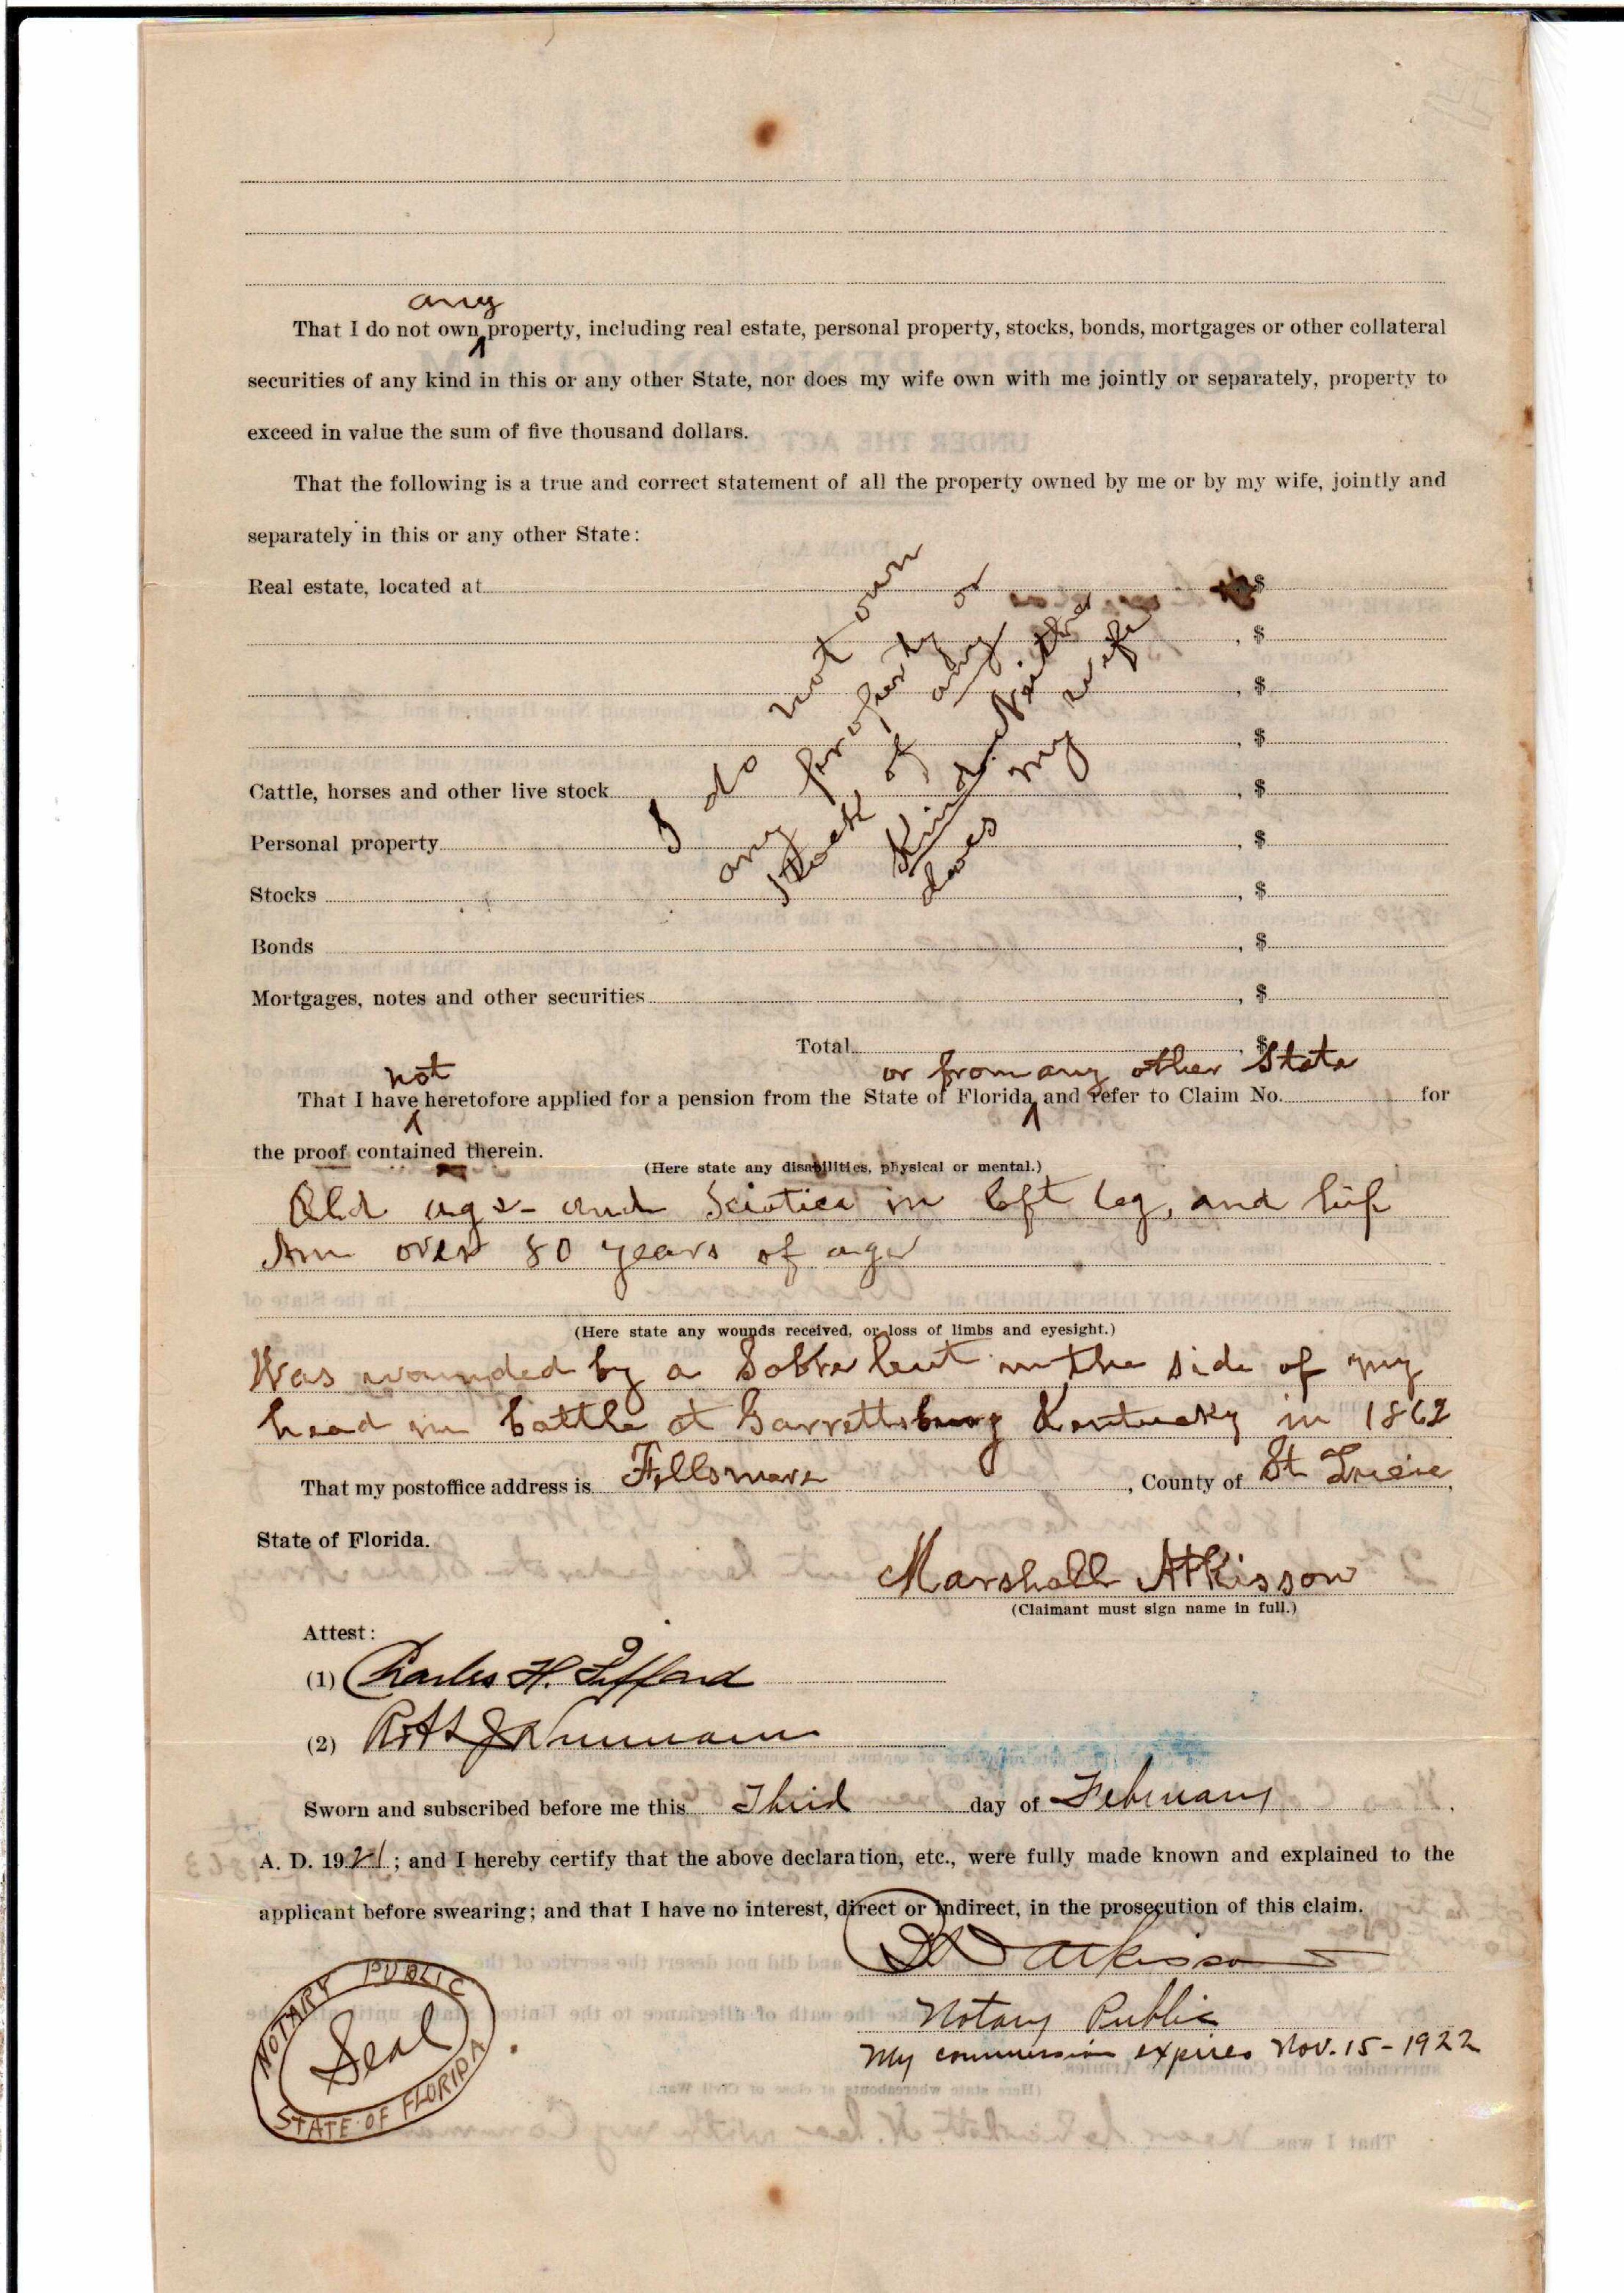 any
That I do not own property, including real estate, personal property, stocks, bonds, mortgages or other collateral
securities of any kind in this or any other State, nor does my wife own with me jointly or separately, property to
exceed in value the sum of five thousand dollars.
That the following is a true and correct statement of all the property owned by me or by my wife, jointly and
separately in this or any other State:
Real estate, located at $
, $
, $
, $
Cattle, horses and other live stock , $
Personal property , $
Stocks , $
Bonds , $
Mortgages, notes and other securities , $
I do not own
any property or
stock of any
Kind. Neither
does my wife
Total , $
not or from any other State
That I have heretofore applied for a pension from the State of Florida and refer to Claim No. for
the proof contained therein.
(Here state any disabilities, physical or mental.)
Old age - and Sciatica in left leg, and hip
Am over 80 years of age
(Here state any wounds received, or loss of limbs and eyesight.)
Was wounded by a Sobre cut in the side of my
head in battle at Garrettsburg Kentucky in 1862
That my postoffice address is Fellsmere , County of St Lucie,
State of Florida.
Marshall Atkisson
(Claimant must sign name in full.)
Attest:
(1) Charles H. Gifford
(2)
Sworn and subscribed before me this Third day of February
A. D. 1921; and I hereby certify that the above declaration, etc., were fully made known and explained to the
applicant before swearing; and that I have no interest, direct or indirect, in the prosecution of this claim.
Atkisson
Notary Public
My commission expires Nov. 15-1922
NOTARY PUBLIC
Seal
STATE OF FLORIDA